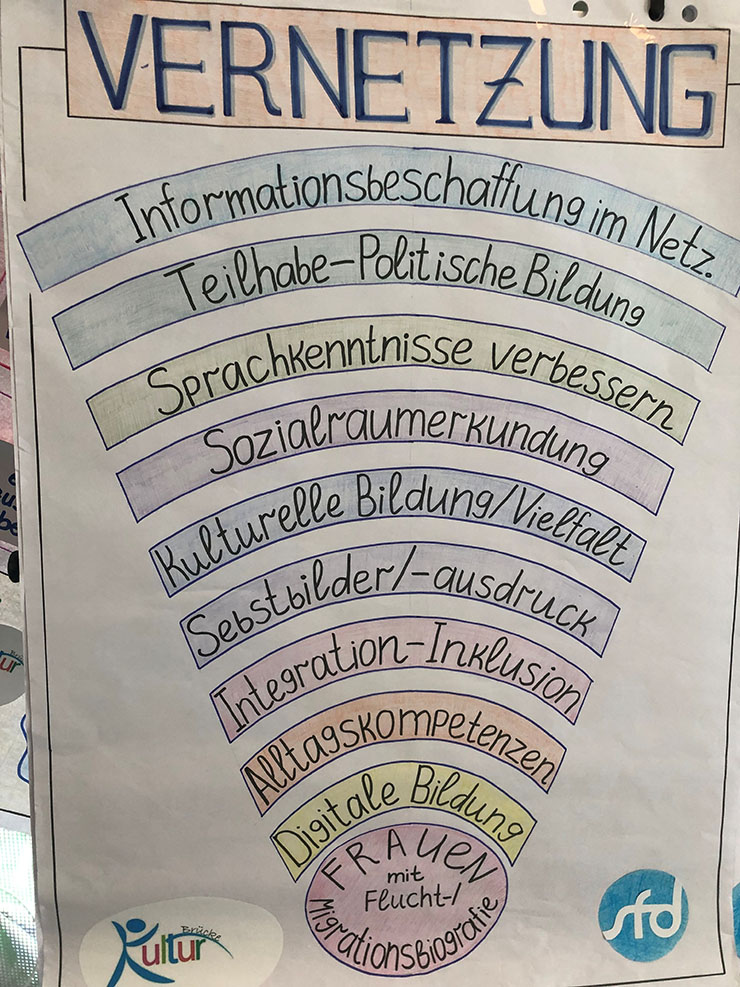 VERNETZUNG
Informationsbeschaffung im Netz.
Teilhabe-Politische Bildung
Sprachkenntnisse verbessern
Sozialraumerkundung
Kulturelle Bildung/Vielfalt
Sebstbilder/-ausdruck
Integration-Inklusion
Alltagskompetenzen
Digitale Bildung
FRAUEN
mit
Flucht-/
Migrationsbiografie
Brücke
Kultur
sfd